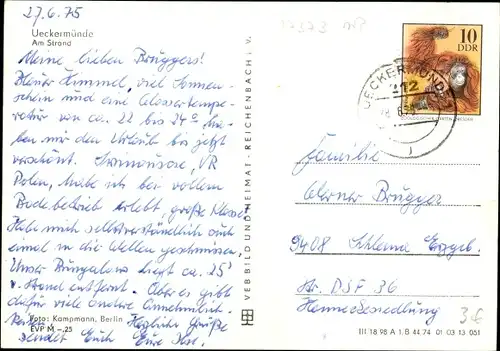 27.6.75
Ueckermünde
Am Strand
Meine lieben Bruggers!
Blauer Himmel, viel Sonnen-
schein und eine Wassertempe-
ratur von ca. 22 bis 24° ha-
ben mir den Urlaub bis jetzt
verschönt. VR
Polen, habe ich bei vollem
Badebetrieb erlebt, große Klasse!
Habe mich selbstverständlich auch
einmal in die Wellen geschmissen.
Unser Bungalow liegt ca. 25'
v. Strand entfernt. Aber es gibt
dafür viele andere Annehmlich-
keiten. Herzliche Grüße
sendet Euch Eure
Foto: Kampmann, Berlin
EVP M –.25
VEB BILD UND HEIMAT · REICHENBACH I. V.
10
DDR
UECKERMÜNDE
212
Familie
Werner Brugger
9408 Schlema Erzgeb.
Str. DSF 36
Hennesiedlung
3€
III 18 98 A 1 B 44.74 01 03 13 051